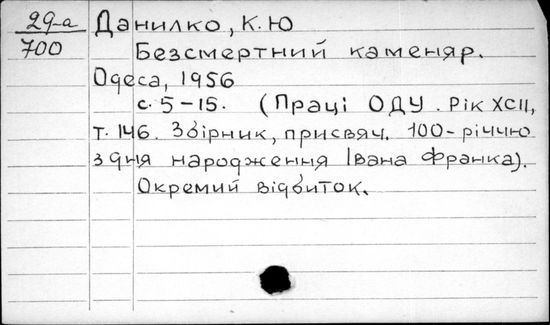 29-а Данилко, К.Ю
700 Безсмертний каменяр.
Одеса, 1956
с. 5-15. (Праці ОДУ. Рік XCII,
т. 146. Збірник, присвяч. 100-річчю
з дня народження Івана Франка).
Окремий відбиток.